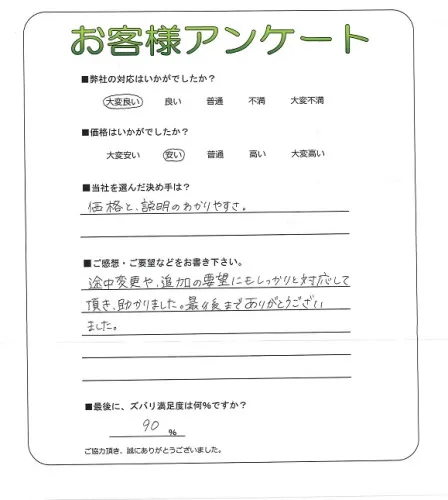 お客様アンケート
■弊社の対応はいかがでしたか？
大変良い 良い 普通 不満 大変不満
■価格はいかがでしたか？
大変安い 安い 普通 高い 大変高い
■当社を選んだ決め手は？
価格と、説明のわかりやすさ。
■ご感想・ご要望などをお書き下さい。
途中変更や、追加の要望にもしっかりと対応して
頂き、助かりました。最後までありがとうござい
ました。
■最後に、ズバリ満足度は何%ですか？
90 %
ご協力頂き、誠にありがとうございました。